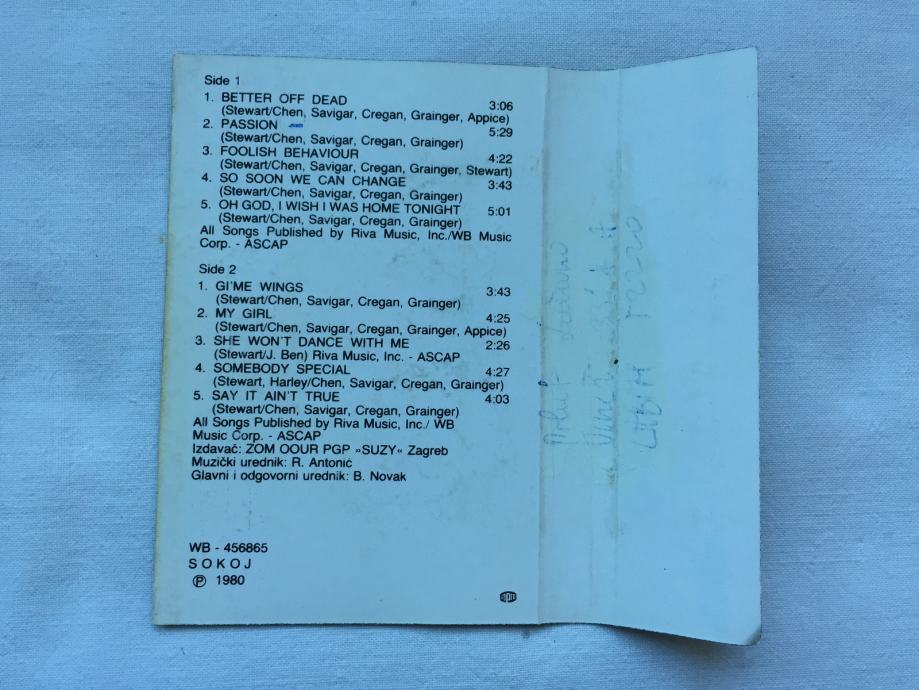 Side 1
1. BETTER OFF DEAD 3:06
(Stewart/Chen, Savigar, Cregan, Grainger, Appice)
2. PASSION 5:29
(Stewart/Chen, Savigar, Cregan, Grainger)
3. FOOLISH BEHAVIOUR 4:22
(Stewart/Chen, Savigar, Cregan, Grainger, Stewart)
4. SO SOON WE CAN CHANGE 3:43
(Stewart/Chen, Savigar, Cregan, Grainger)
5. OH GOD, I WISH I WAS HOME TONIGHT 5:01
(Stewart/Chen, Savigar, Cregan, Grainger)
All Songs Published by Riva Music, Inc./WB Music
Corp. - ASCAP
Side 2
1. GI'ME WINGS 3:43
(Stewart/Chen, Savigar, Cregan, Grainger)
2. MY GIRL 4:25
(Stewart/Chen, Savigar, Cregan, Grainger, Appice)
3. SHE WON'T DANCE WITH ME 2:26
(Stewart/J. Ben) Riva Music, Inc. - ASCAP
4. SOMEBODY SPECIAL 4:27
(Stewart, Harley/Chen, Savigar, Cregan, Grainger)
5. SAY IT AIN'T TRUE 4:03
(Stewart/Chen, Savigar, Cregan, Grainger)
All Songs Published by Riva Music, Inc./ WB
Music Corp. - ASCAP
Izdavač: ZOM OOUR PGP »SUZY« Zagreb
Muzički urednik: R. Antonić
Glavni i odgovorni urednik: B. Novak
WB - 456865
SOKOJ
℗ 1980
LABIN